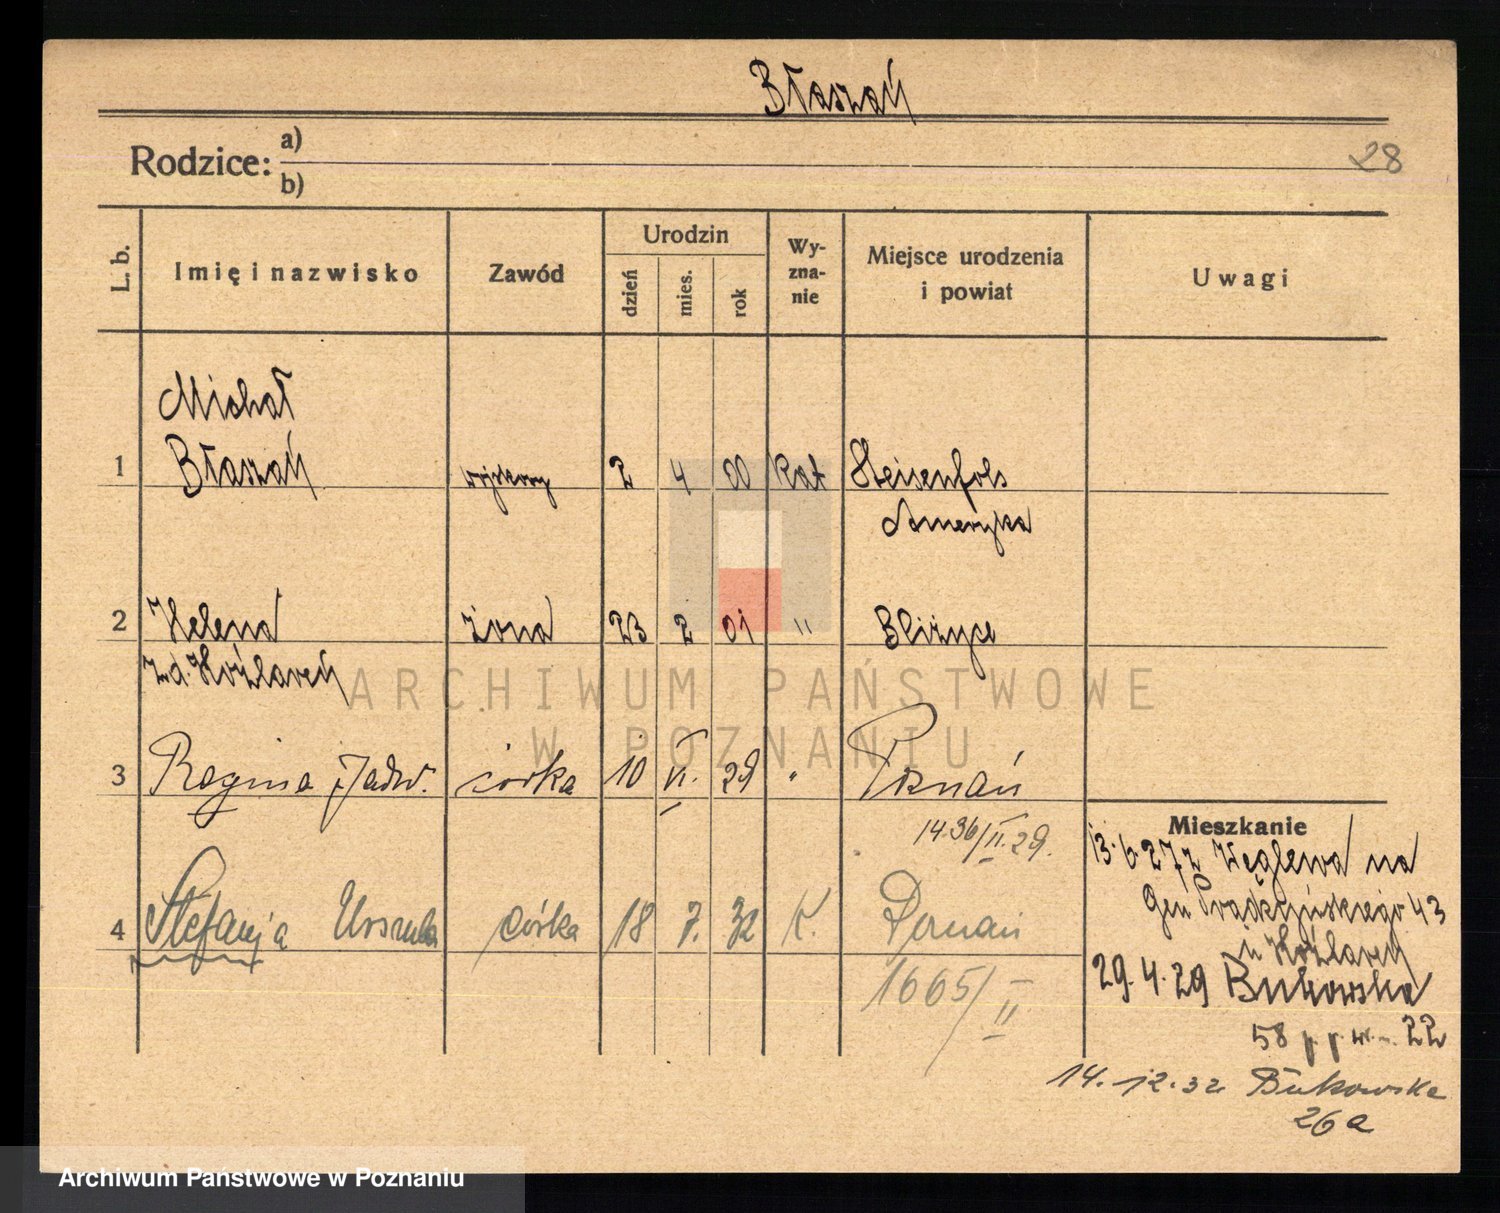 Błaszań
Rodzice: a)
b)
28
L. b.
Imię i nazwisko
Zawód
Urodzin
dzień
mies.
rok
Wy-
zna-
nie
Miejsce urodzenia
i powiat
Uwagi
Michał
1 Błaszań 2 4 00 Kat
Ameryka
2 Helena żona 23 2 01 "
z d.
3 Regina Jadw. córka 10 VI. 29 " Poznań
14.36/II.29.
4 Stefanja Urszula córka 18 7. 32 K. Poznań
1665/II
Mieszkanie
13.6.27 z Węglewa na
Gen Prądzyńskiego 43
29.4.29 Bukowska
58 22
14.12.32 Bukowska
26a
ARCHIWUM PAŃSTWOWE
W POZNANIU
Archiwum Państwowe w Poznaniu